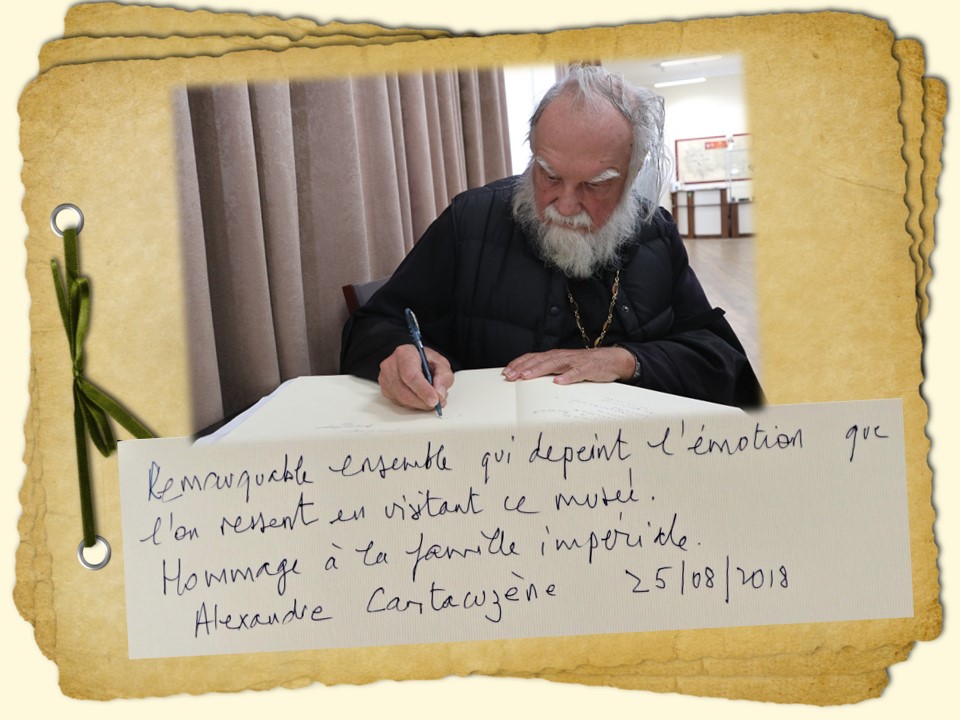 Remarquable ensemble qui depeint l'émotion que
l'on ressent en visitant ce museé.
Hommage à la famille impériale.
Alexandre Cantacuzène 25/08/2018